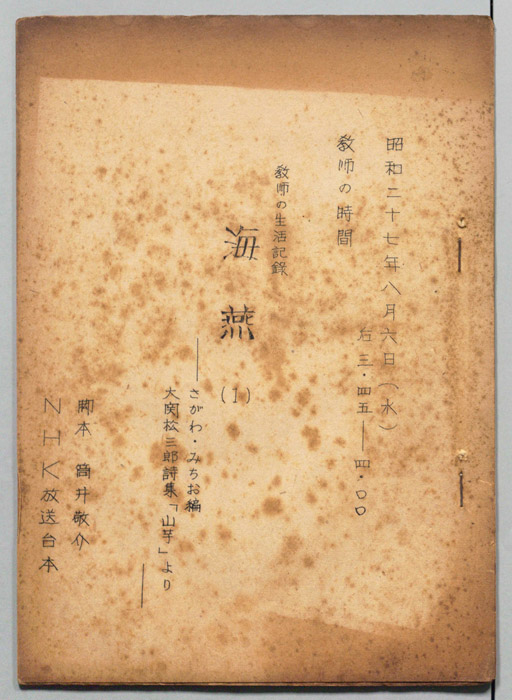 昭和二十七年八月六日（水）
后三・四五――四・〇〇
教師の時間
教師の生活記録
海燕
(1)
――さがわ・みちお編
大関松三郎詩集「山芋」より――
脚本 筒井敬介
NHK放送台本